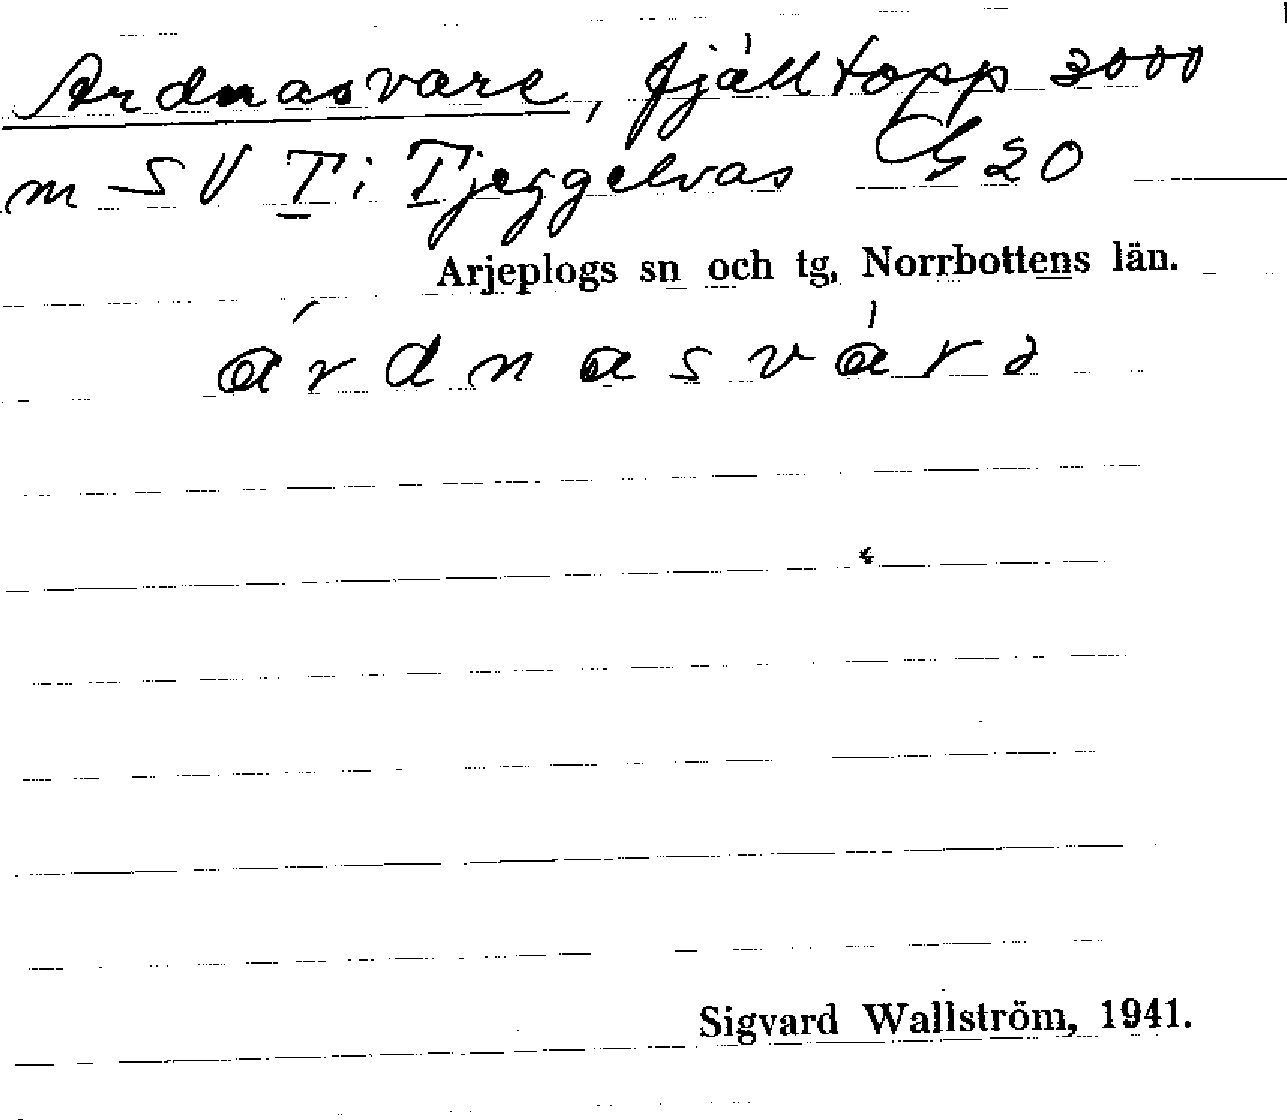 Ardnasvare, fjälltopp 3000
m SV T i Tjeggelvas G20
Arjeplogs sn och tg, Norrbottens län.
árdnasvárə
Sigvard Wallström, 1941.